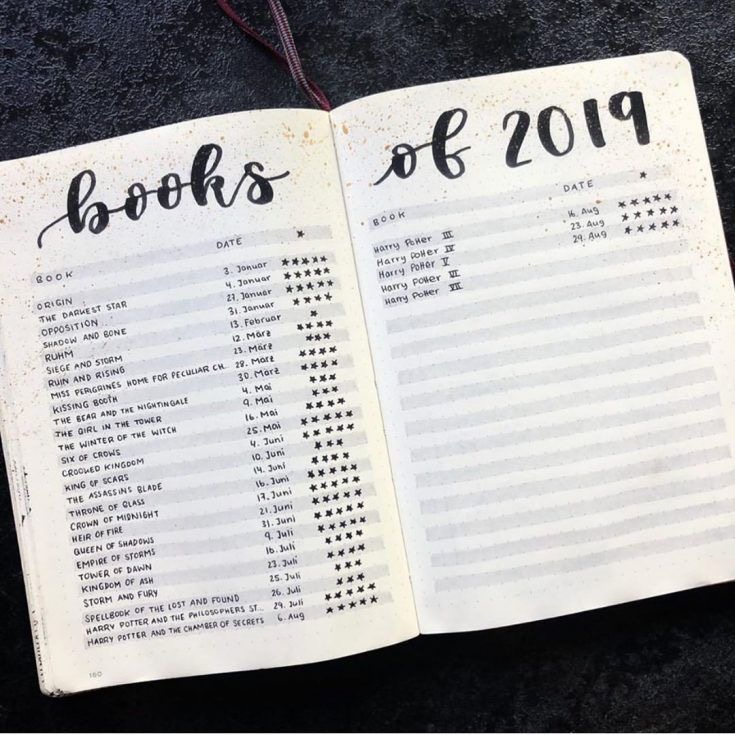 books of 2019
BOOK DATE ★
ORIGIN 3. Januar ★★★★★
THE DARKEST STAR 4. Januar ★★★★★
OPPOSITION 27. Januar ★★★★★
SHADOW AND BONE 31. Januar ★★★★
RUHM 13. Februar ★
SIEGE AND STORM 12. März ★★★★
RUIN AND RISING 23. März ★★★
MISS PERIGRINES HOME FOR PECULIAR CH. 28. März ★★★★
KISSING BOOTH 30. März ★★★★
THE BEAR AND THE NIGHTINGALE 4. Mai ★★★
THE GIRL IN THE TOWER 9. Mai ★★★
THE WINTER OF THE WITCH 16. Mai ★★★★
SIX OF CROWS 25. Mai ★★★★★
CROOKED KINGDOM 4. Juni ★★★★★
KING OF SCARS 10. Juni ★★★
THE ASSASSINS BLADE 14. Juni ★★★★
THRONE OF GLASS 16. Juni ★★★★
CROWN OF MIDNIGHT 17. Juni ★★★★★
HEIR OF FIRE 21. Juni ★★★★★
QUEEN OF SHADOWS 31. Juni ★★★★★
EMPIRE OF STORMS 9. Juli ★★★★★
TOWER OF DAWN 16. Juli ★★★★
KINGDOM OF ASH 23. Juli ★★★★★
STORM AND FURY 25. Juli ★★★
SPELLBOOK OF THE LOST AND FOUND 26. Juli ★★★
HARRY POTTER AND THE PHILOSOPHERS ST... 29. Juli ★★★★★
HARRY POTTER AND THE CHAMBER OF SECRETS 6. Aug ★★★★★
160
BOOK DATE ★
Harry Potter III 16. Aug ★★★★★
Harry Potter IV 23. Aug ★★★★★
Harry Potter V 29. Aug ★★★★★
Harry Potter
Harry Potter VII